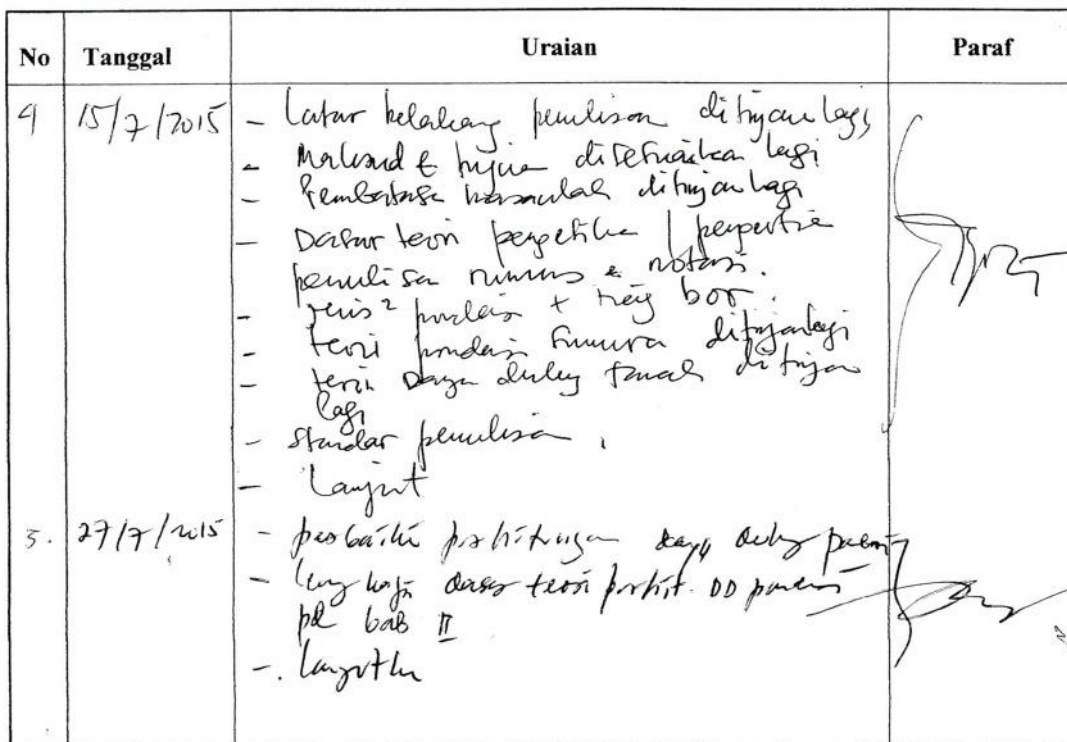 No Tanggal Uraian Paraf
4 15/7/2015 - Latar belakang penulisan ditinjau lagi
- Maksud & tujuan disesuaikan lagi
- Pembatasan masalah ditinjau lagi
- Dasar teori pengetikan / pengertian
penulisan rumus & notasi.
- jenis² pondasi + tiang bor.
- teori pondasi sumuran ditinjau lagi
- teori Daya dukung tanah ditinjau
lagi
- standar penulisan.
- Lanjut
5. 27/7/2015 - perbaiki perhitungan daya dukung
- lengkapi dasar teori perhit. DD pondasi
pd bab II
- Lanjutkan